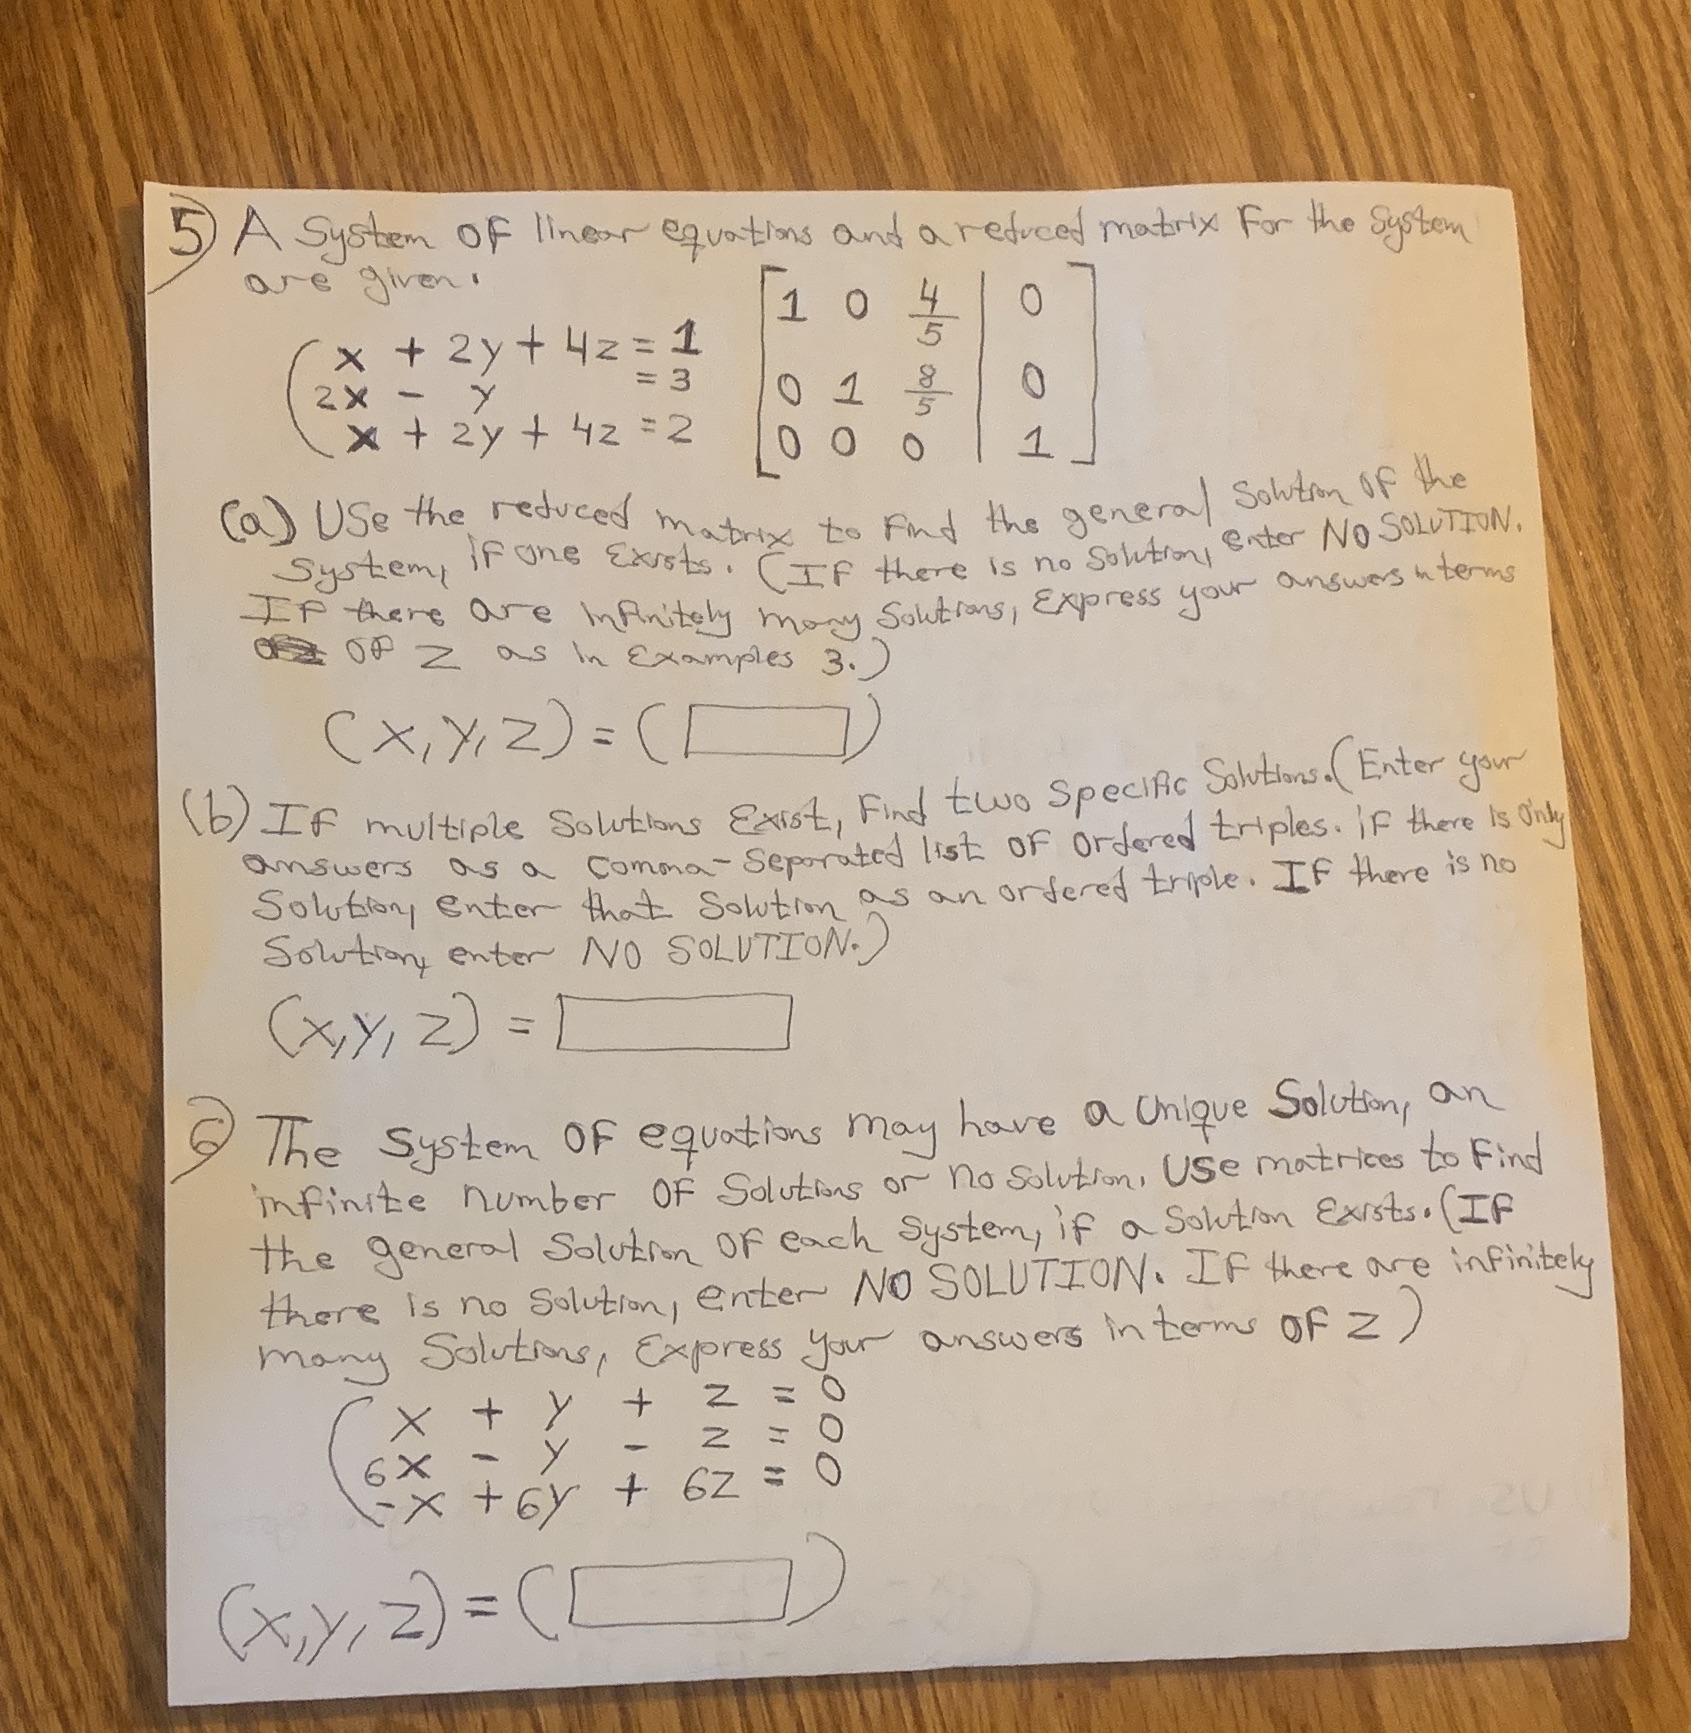 5) A System OF linear equations and a reduced matrix For the System
are given.
x + 2y + 4z = 1
2x - y = 3
x + 2y + 4z = 2
[1 0 4/5 | 0]
[0 1 8/5 | 0]
[0 0 0 | 1]
(a) Use the reduced matrix to Find the general Solution OF the
System, if one Exists. (IF there is no Solution, enter NO SOLUTION.
IF there are infinitely many Solutions, Express your answers in terms
OF z as in Examples 3.)
(x, y, z) = ( )
(b) If multiple Solutions Exist, Find two Specific Solutions. (Enter your
answers as a comma-separated list OF ordered triples. if there is only
Solution, enter that Solution as an ordered triple. IF there is no
Solution, enter NO SOLUTION.)
(x, y, z) =
6) The System OF equations may have a Unique Solution, an
infinite number OF Solutions or no solution. Use matrices to Find
the general Solution OF each System, if a Solution Exists. (IF
there is no Solution, enter NO SOLUTION. IF there are infinitely
many Solutions, Express your answers in terms OF z)
x + y + z = 0
6x - y - z = 0
-x + 6y + 6z = 0
(x, y, z) = ( )